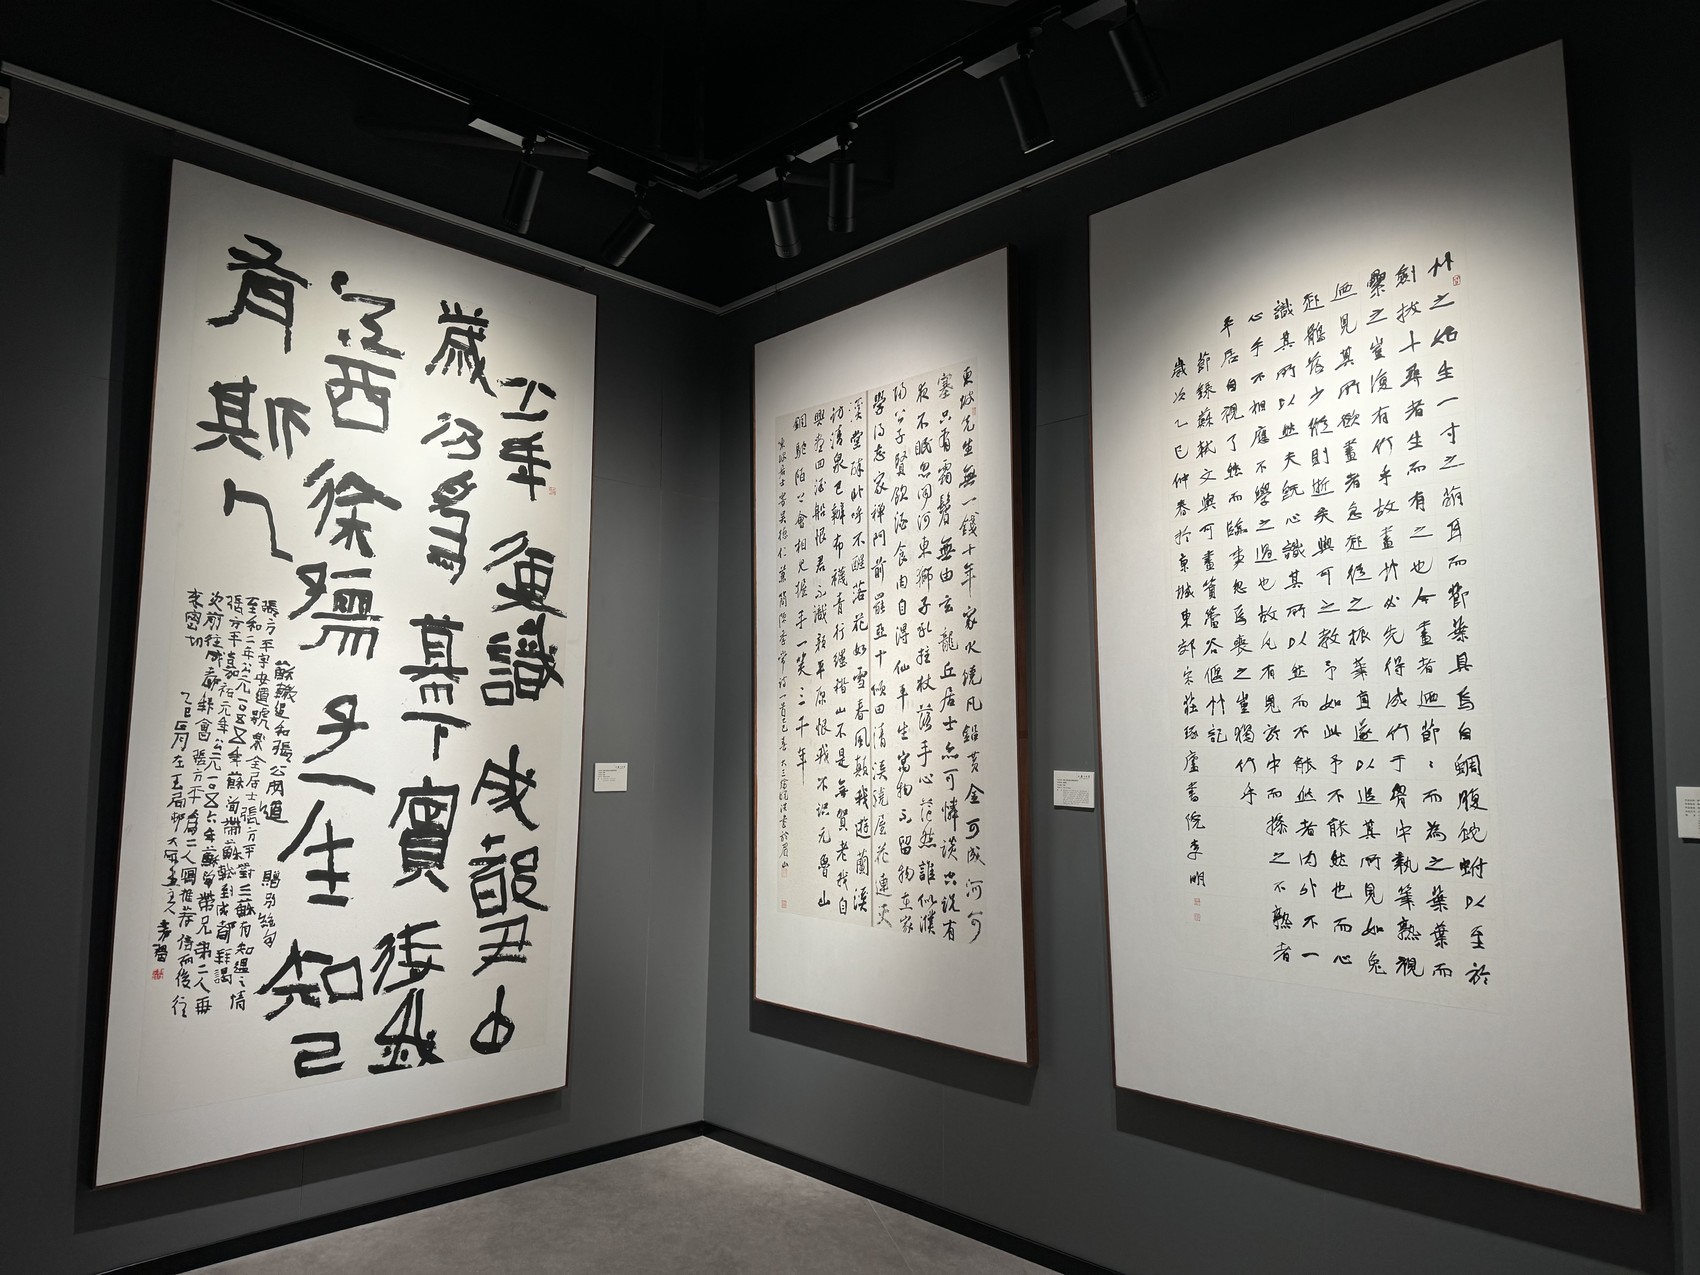 少年便識成都尹中
歲仍爲幕下賓待我
江西徐孺子一生知己
有斯人
蘇轍追和張公安道贈別絕句
張方平字安道號樂全居士張方平對三蘇有知遇之情
至和二年公元一〇五五年蘇洵帶蘇轍到成都拜謁
張方平嘉祐元年公元一〇五六年蘇洵帶兄弟二人再
次前往成都拜會張方平爲二人寫推荐信而後往
來密切
乙巳四月在玉局邨
東坡先生無一錢十年家火燒凡鉛黃金可成河可
塞只有霜鬢無由玄龍丘居士亦可憐談空說有
夜不眠忽聞河東獅子吼拄杖落手心茫然誰似濮
陽公子賢飲酒食肉自得仙平生寓物不留物在家
學得忘家禪門前罷亞十頃田清溪繞屋花連天
溪堂醉臥呼不醒落花如雪春風顛我遊蘭溪
訪清泉已辦布襪青行纏稽山不是無賀老我自
興盡回酒船恨君不識顏平原恨我不識元魯山
銅駝陌上會相見握手一笑三千年
東坡居士寄吳德仁兼簡陳季常詩一首乙巳春書於眉山
竹之始生一寸之萌耳而節葉具焉自蜩腹蛇蚹以至於
劍拔十尋者生而有之也今畫者迺節〻而爲之葉葉而
纍之豈復有竹乎故畫竹必先得成竹于胷中執筆熟視
迺見其所欲畫者急起從之振筆直遂以追其所見如兔
起鶻落少縱則逝矣與可之教予如此予不能然也而心
識其所以然夫既心識其所以然而不能然者內外不一
心手不相應不學之過也故凡有見於中而操之不熟者
平居自視了然而臨事忽焉喪之豈獨竹乎
節錄蘇軾文與可畫篔簹谷偃竹記
歲次乙巳仲春於東城東郊宋莊琢廬書院李明